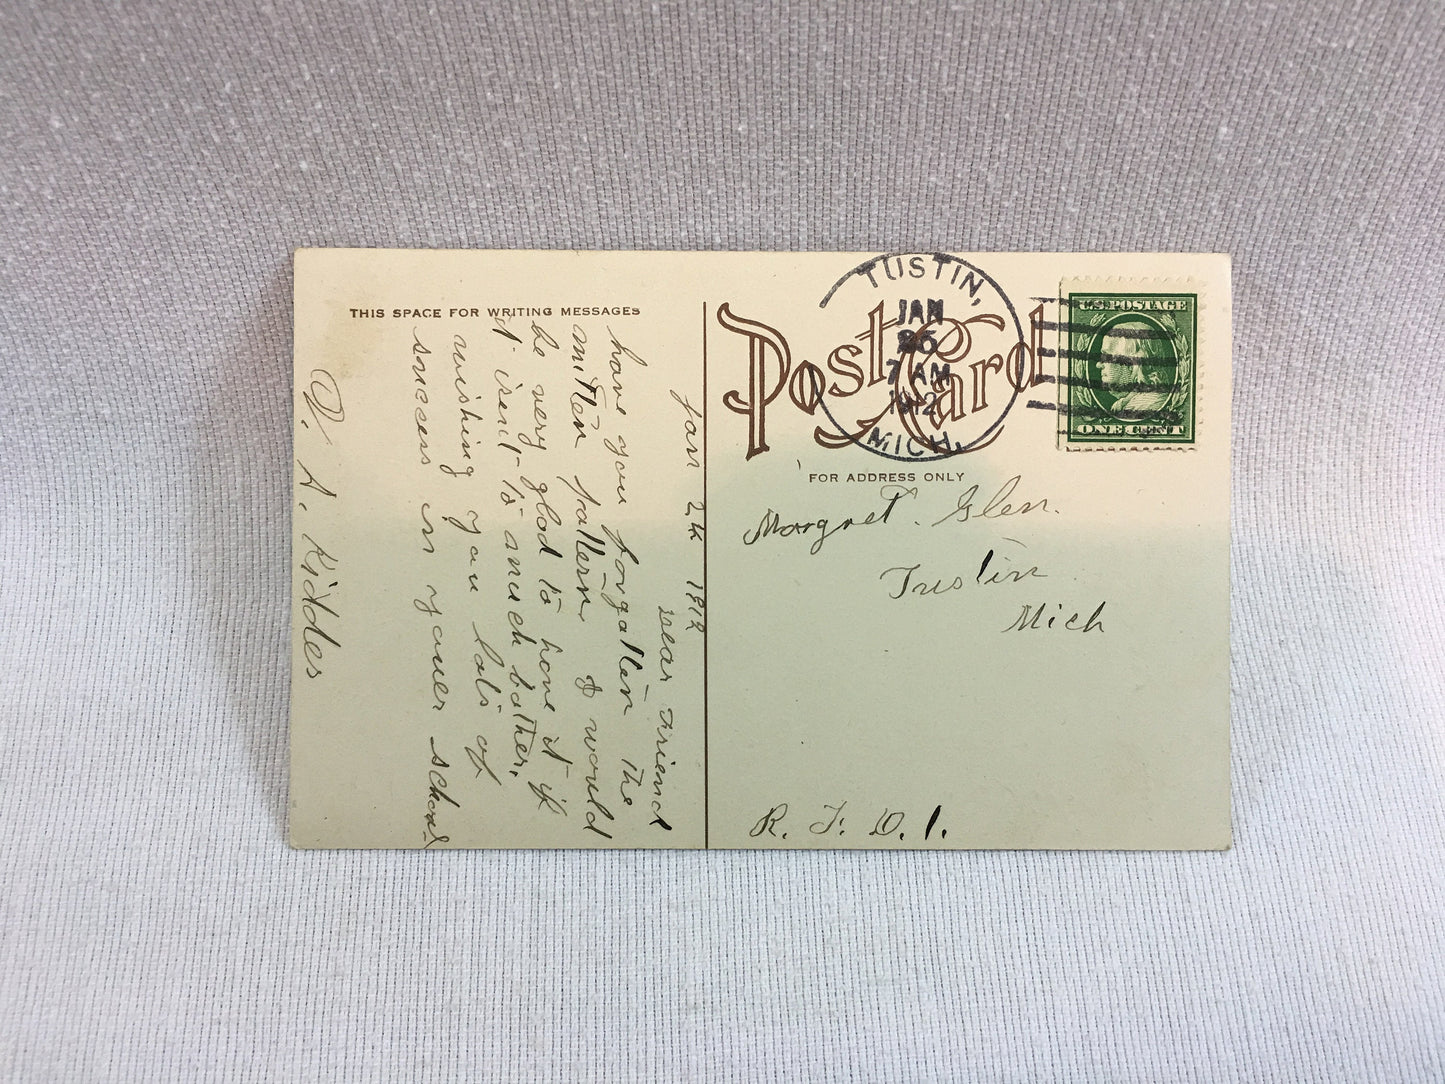 THIS SPACE FOR WRITING MESSAGES
Jan 24 1912
Dear Friend
have you forgotten the
mitten pattern I would
be very glad to have it if
it isent to much bother.
wishing you lots of
success in youer school
A. Kiddes
Post Card
TUSTIN,
JAN
25
7 AM
1912
MICH.
U.S. POSTAGE
ONE CENT
FOR ADDRESS ONLY
Margret. Glen.
Tustin
Mich
R. F. D. 1.